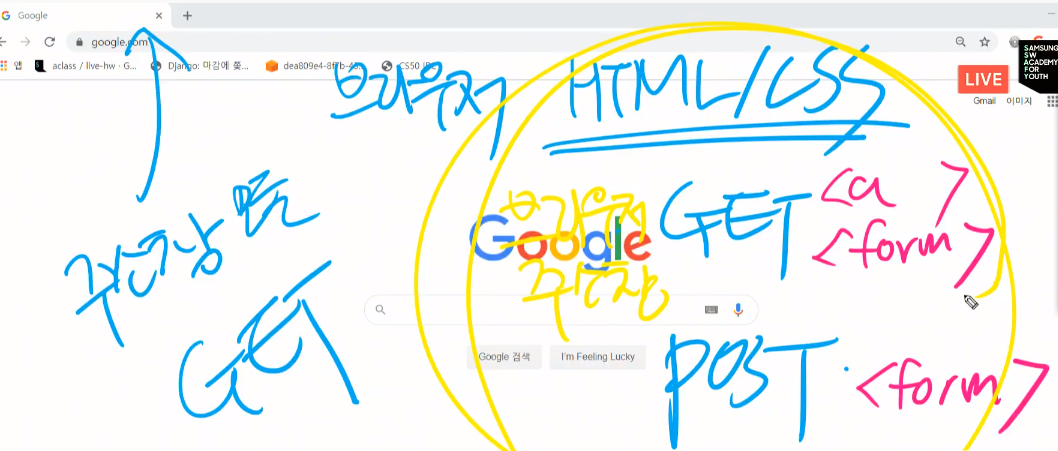 Google
google.com
앱
aclass / live-hw · G...
Django: 마감에 쫓...
dea809e4-8f7b-48...
CS50 IDE
SAMSUNG
SW
ACADEMY
FOR
YOUTH
LIVE
Gmail 이미지
브라우저 HTML/CSS
주소창 모든
GET
브라우저
주소창
GET <a >
<form>
Google
Google 검색 I'm Feeling Lucky
POST <form>